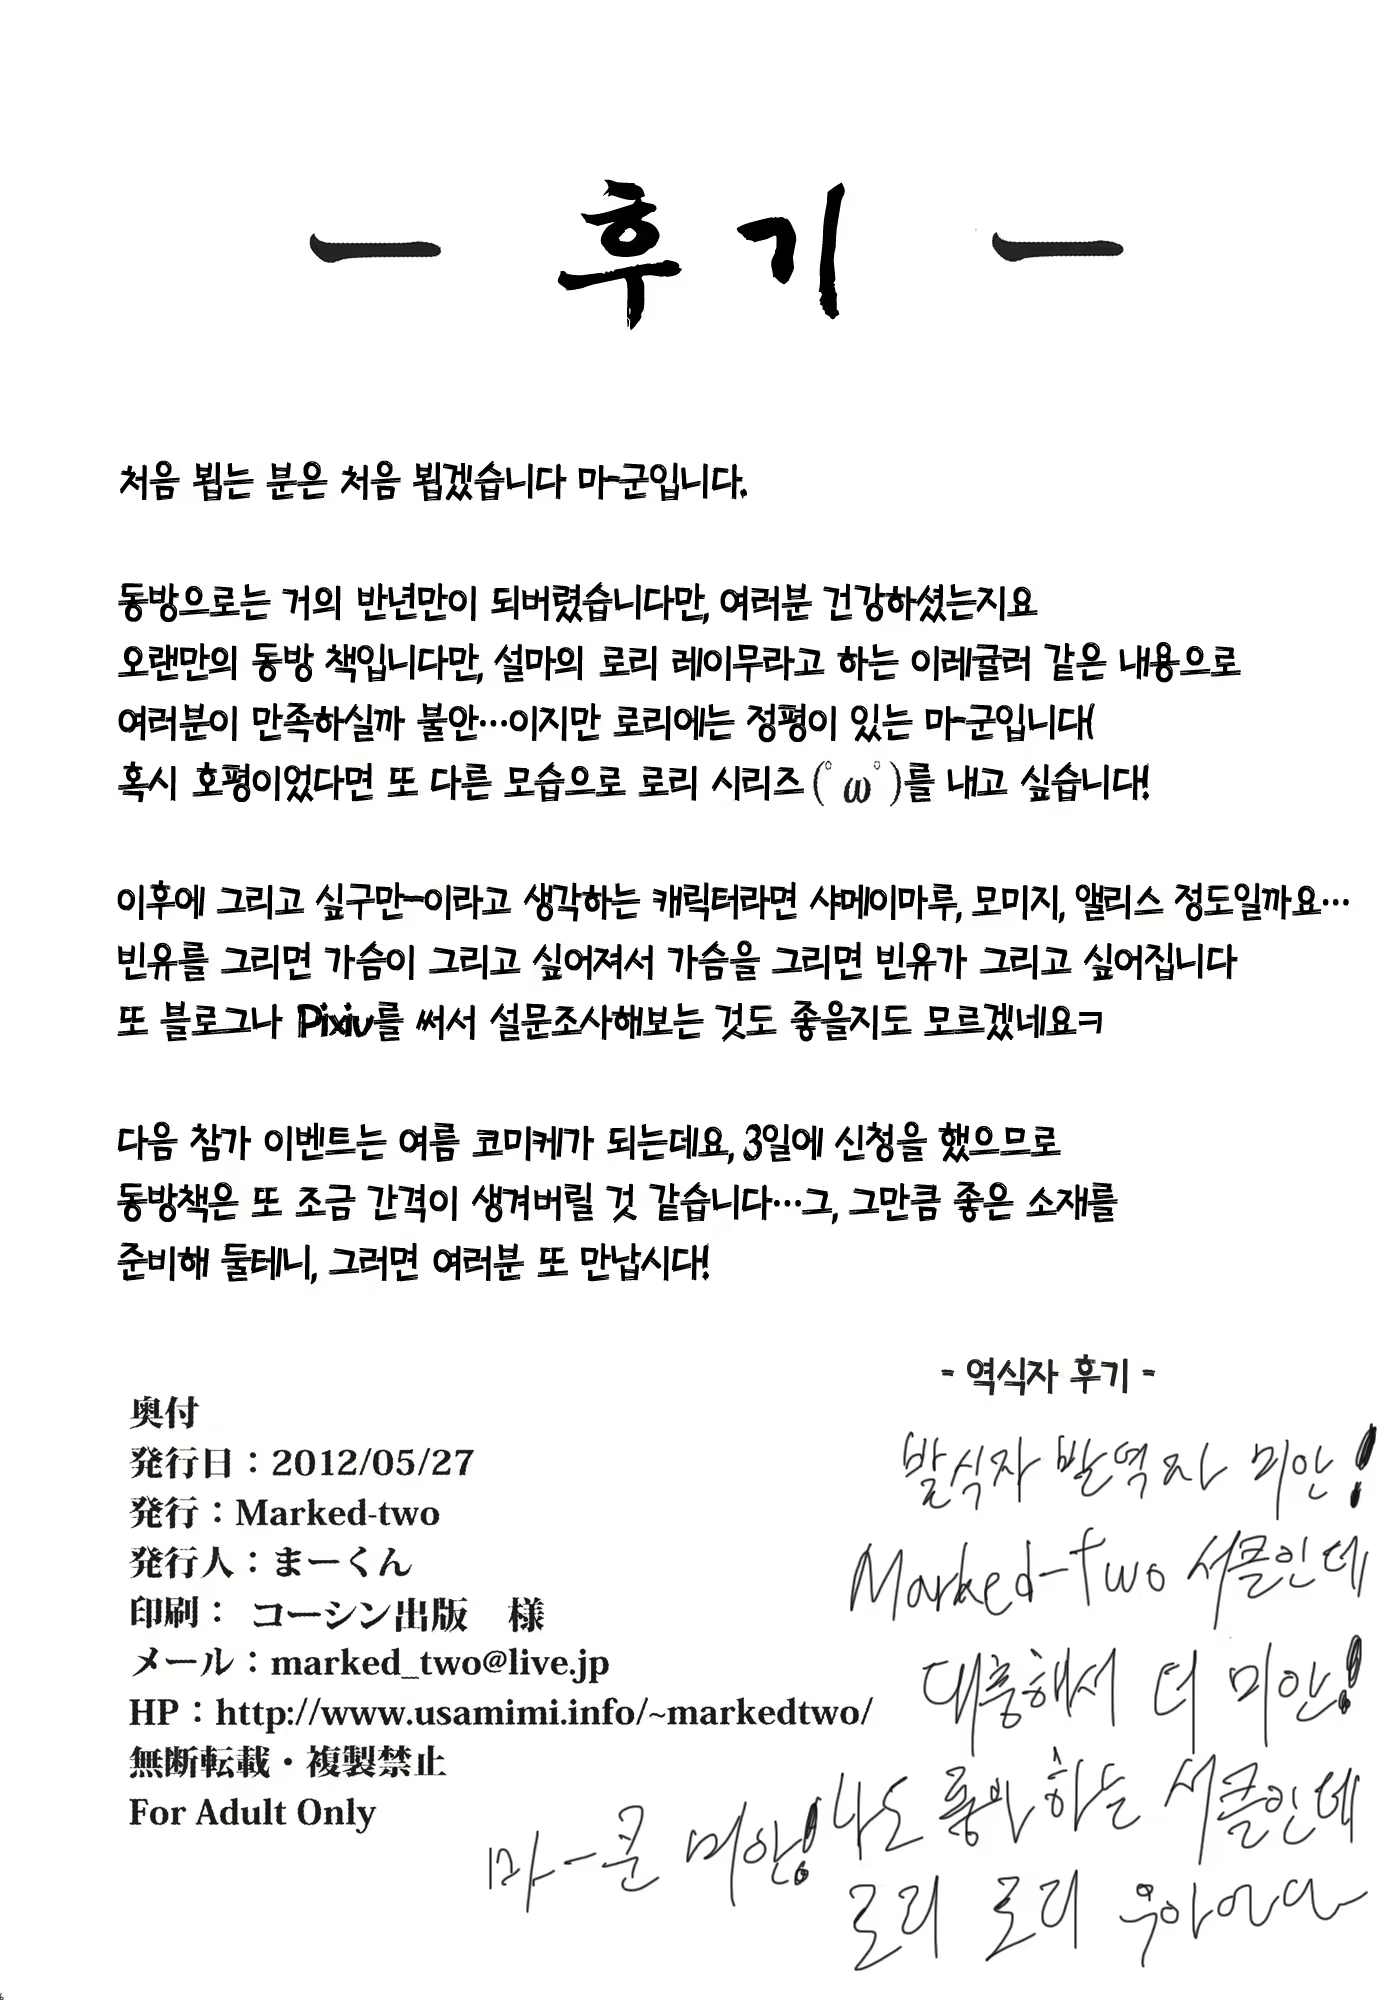 — 후기 —
처음 뵙는 분은 처음 뵙겠습니다 마-군입니다.
동방으로는 거의 반년만이 되버렸습니다만, 여러분 건강하셨는지요
오랜만의 동방 책입니다만, 설마의 로리 레이무라고 하는 이레귤러 같은 내용으로
여러분이 만족하실까 불안…이지만 로리에는 정평이 있는 마-군입니다(
혹시 호평이었다면 또 다른 모습으로 로리 시리즈(゚ω゚)를 내고 싶습니다!
이후에 그리고 싶구만~이라고 생각하는 캐릭터라면 샤메이마루, 모미지, 앨리스 정도일까요…
빈유를 그리면 가슴이 그리고 싶어져서 가슴을 그리면 빈유가 그리고 싶어집니다
또 블로그나 Pixiv를 써서 설문조사해보는 것도 좋을지도 모르겠네요ㅋ
다음 참가 이벤트는 여름 코미케가 되는데요, 3일에 신청을 했으므로
동방책은 또 조금 간격이 생겨버릴 것 같습니다…그, 그만큼 좋은 소재를
준비해 둘테니, 그러면 여러분 또 만납시다!
奥付
発行日：2012/05/27
発行：Marked-two
発行人：まーくん
印刷： コーシン出版　様
メール：marked_two@live.jp
HP：http://www.usamimi.info/~markedtwo/
無断転載・複製禁止
For Adult Only
- 역식자 후기 -
발식자 발역자 미안!
Marked-two 서클인데
대충해서 더 미안!
나도 좋아하는 서클인데
로리 로리 우아아아
마-쿤 미안!